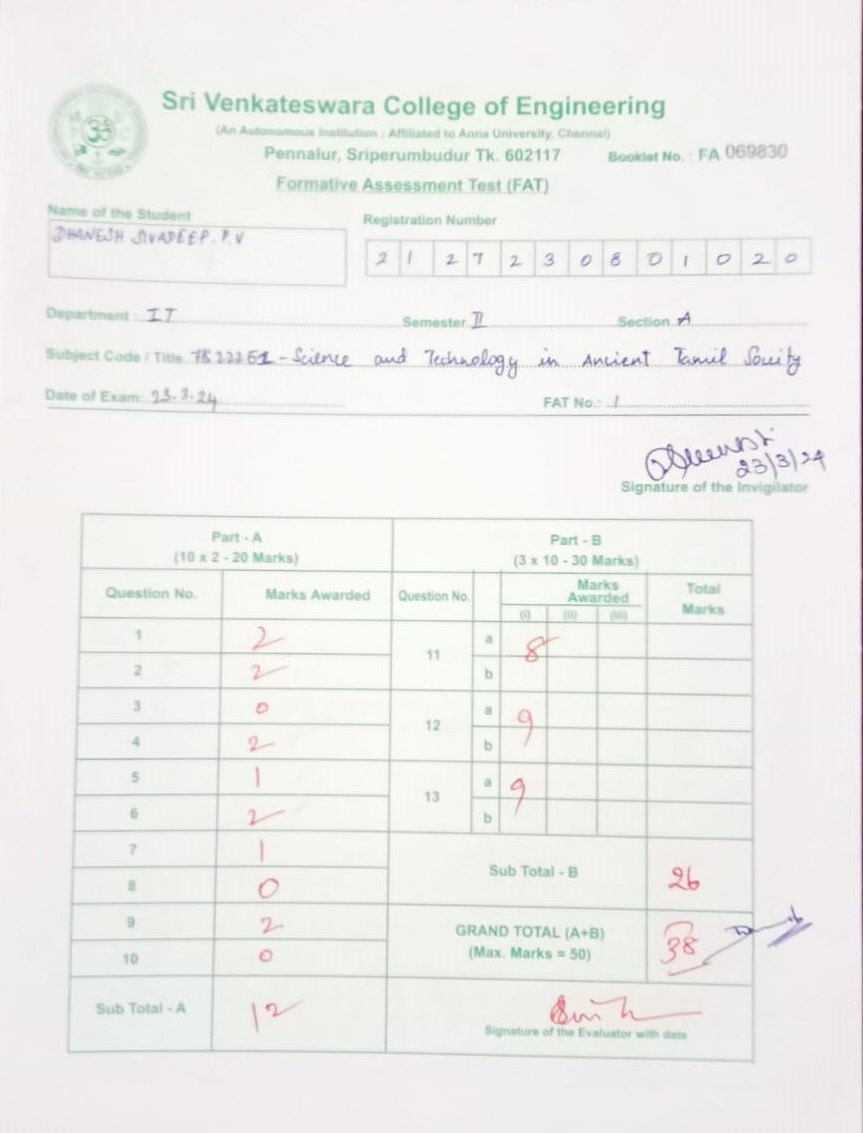 Sri Venkateswara College of Engineering
(An Autonomous Institution ; Affiliated to Anna University, Chennai)
Pennalur, Sriperumbudur Tk. 602117
Booklet No. : FA 069830
Formative Assessment Test (FAT)
Name of the Student
DHANESH SIVADEEP. P.V
Registration Number
2 1 2 7 2 3 0 8 0 1 0 2 0
Department : IT
Semester II
Section A
Subject Code / Title HS22251 - Science and Technology in Ancient Tamil Souity
Date of Exam: 23.3.24
FAT No.: 1
23/3/24
Signature of the Invigilator
Part - A
(10 x 2 - 20 Marks)
Part - B
(3 x 10 - 30 Marks)
Question No. Marks Awarded
Question No. Marks Awarded Total Marks
(i) (ii) (iii)
1 2
2 2
3 0
4 2
5 1
6 2
7 1
8 0
9 2
10 0
Sub Total - A 12
11 a 8
b
12 a 9
b
13 a 9
b
Sub Total - B 26
GRAND TOTAL (A+B)
(Max. Marks = 50) 38
Signature of the Evaluator with date